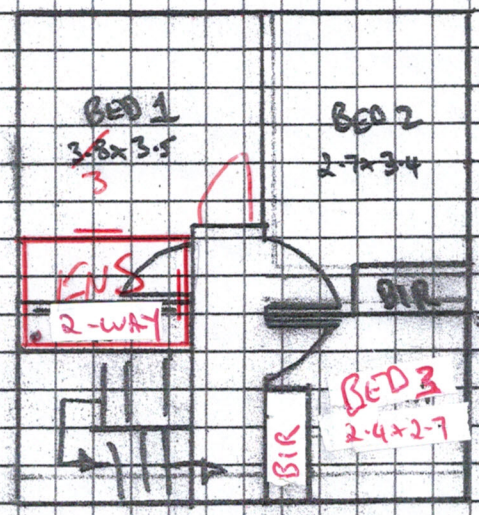 BED 1
3.8 x 3.5
3
BED 2
2.7 x 3.4
ENS
2-WAY
BIR
BED 3
2.4 x 2.7
BIR